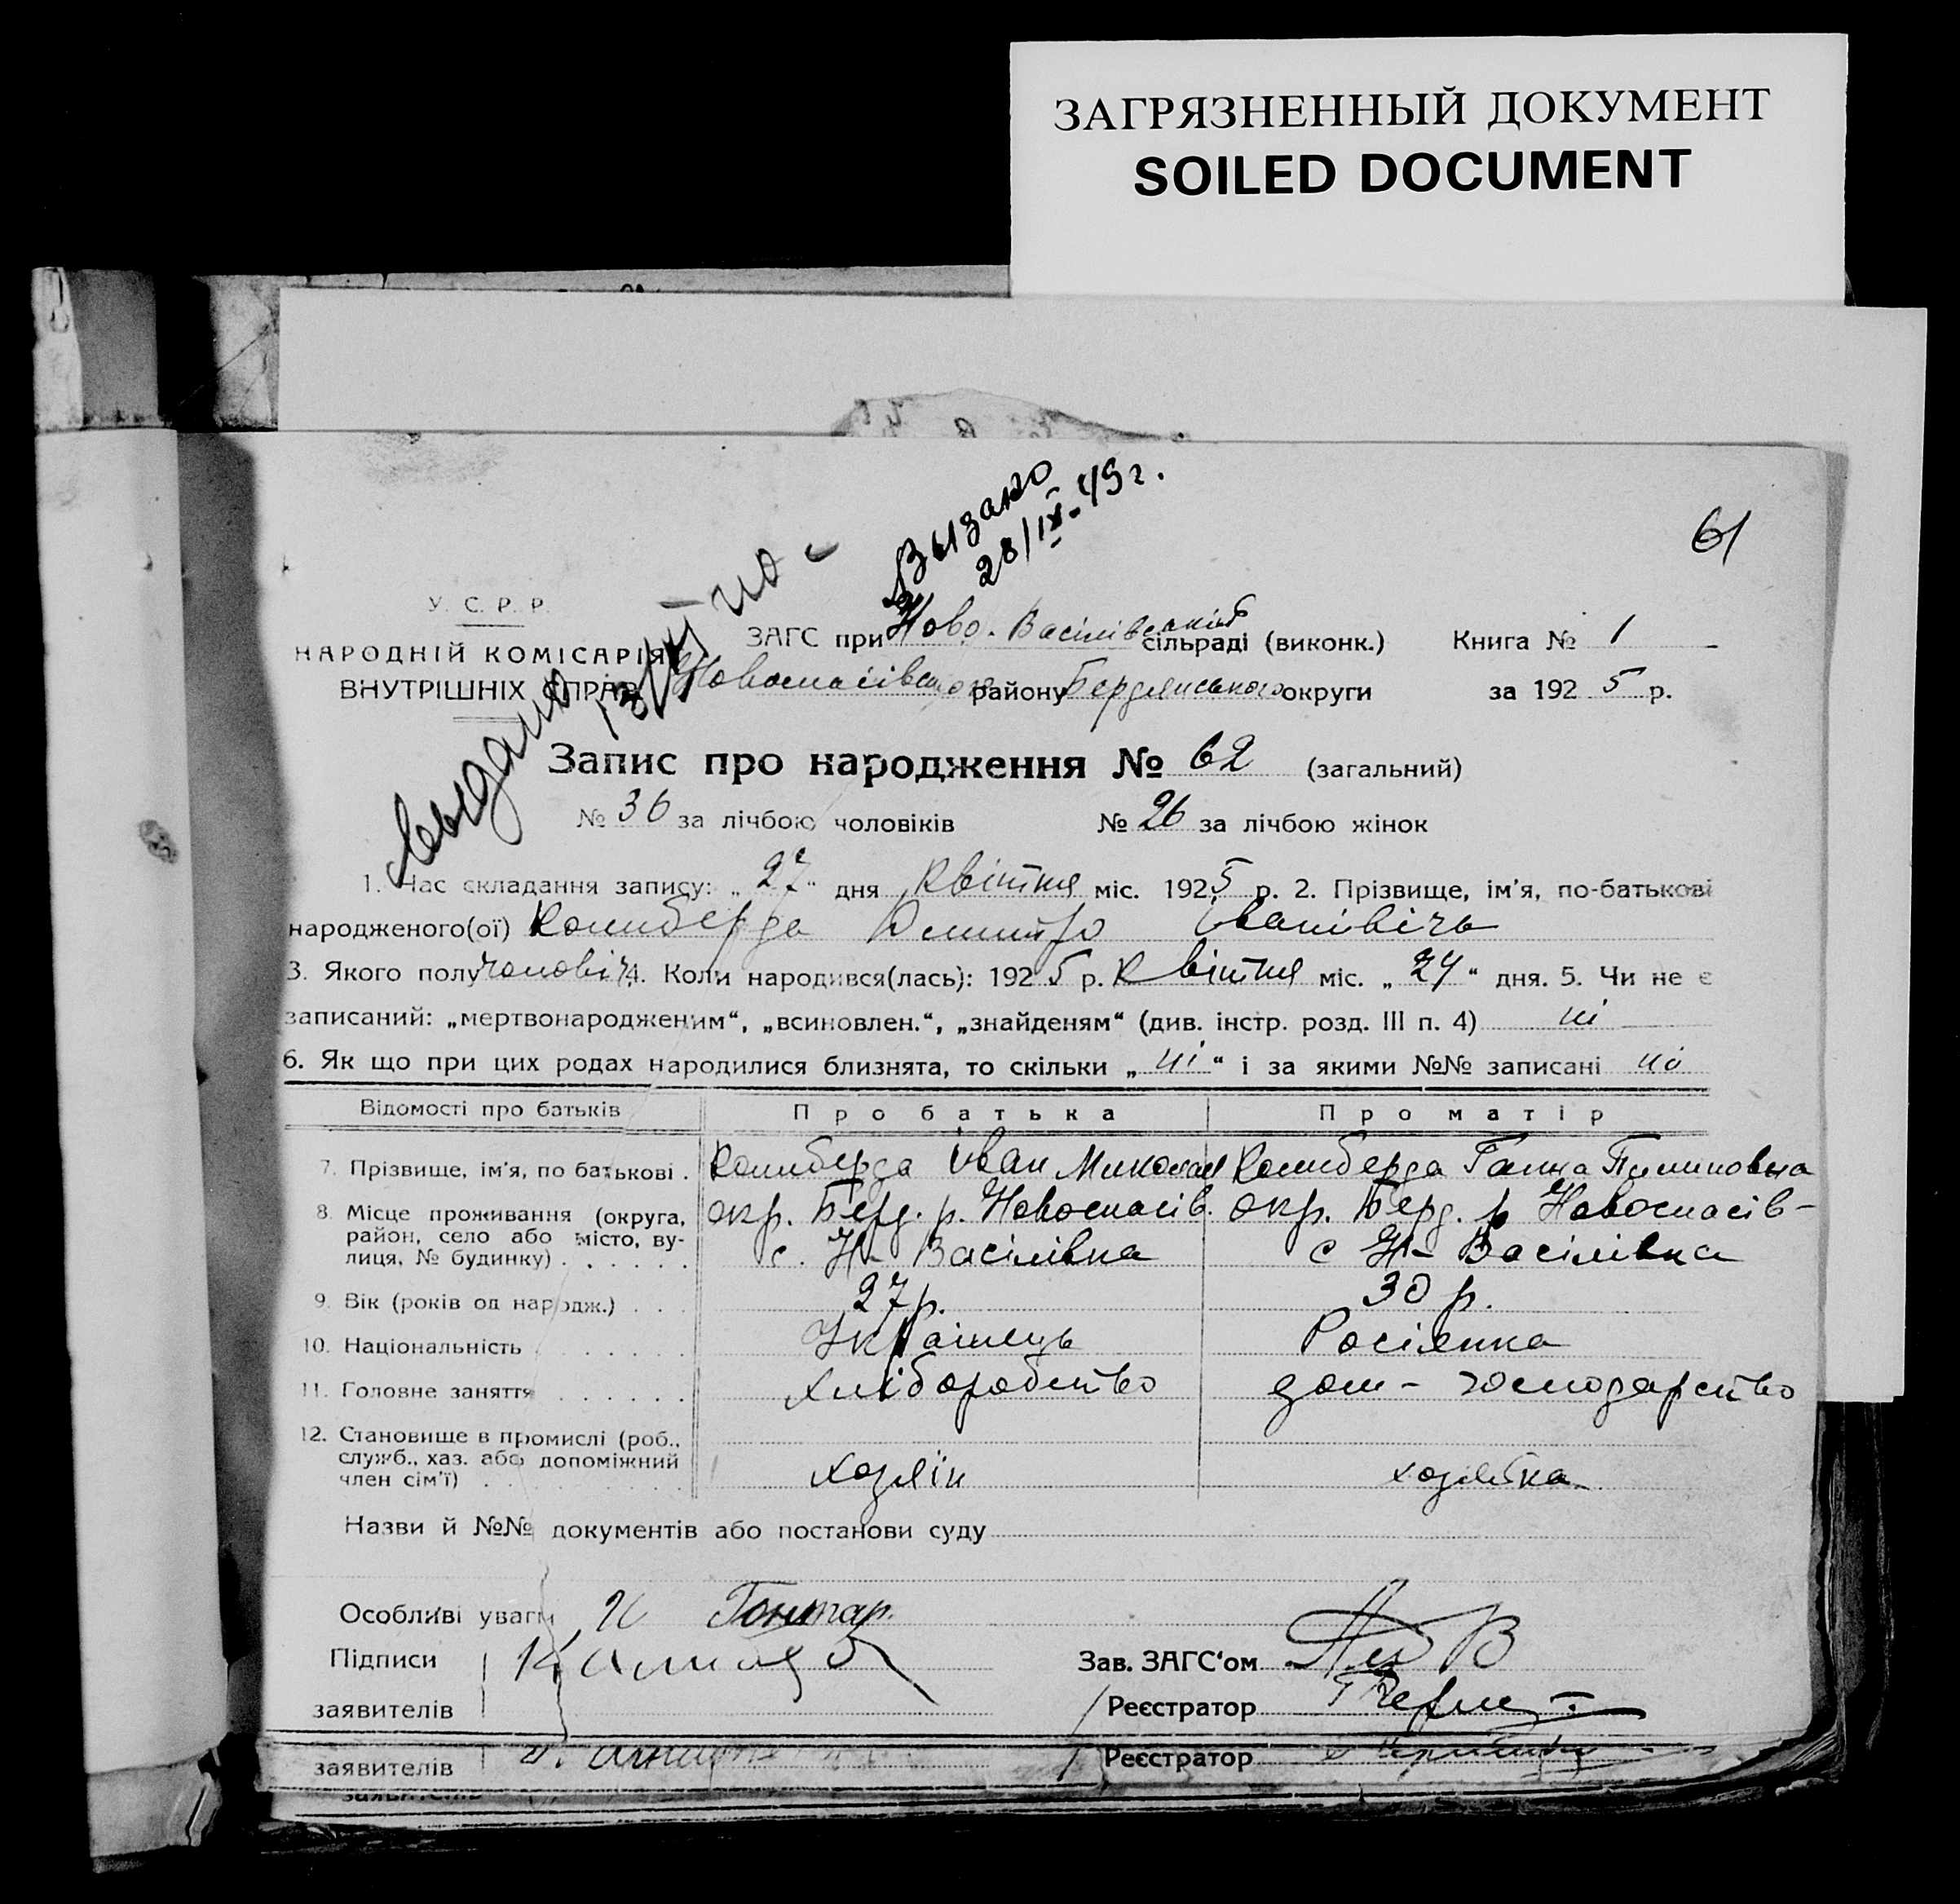 ЗАГРЯЗНЕННЫЙ ДОКУМЕНТ
SOILED DOCUMENT
61
28/IX-49 г.
У. С. Р. Р.
НАРОДНІЙ КОМІСАРІЯТ
ВНУТРІШНІХ СПРАВ
ЗАГС при Ново-Васілівській сільраді (виконк.) Книга № 1
Новоспасівського району Бердянського округи за 1925 р.
Запис про народження № 62 (загальний)
№ 36 за лічбою чоловіків № 26 за лічбою жінок
1. Час складання запису: „27“ дня Квітня міс. 1925 р. 2. Прізвище, ім'я, по-батькові
народженого(ої) Колиберда Дмитро Іванівічь
3. Якого полу чоловіч 4. Коли народився(лась): 1925 р. Квітня міс. „24“ дня. 5. Чи не є
записаний: „мертвонародженим“, „всиновлен.“, „знайденям“ (див. інстр. розд. III п. 4) ні
6. Як що при цих родах народилися близнята, то скільки „ні“ і за якими №№ записані ні
Відомості про батьків Про батька Про матір
7. Прізвище, ім'я, по батькові . Колиберда Іван Микола Колиберда Ганна
8. Місце проживання (округа, район, село або місто, вулиця, № будинку) . . . . . . окр. Берд. р. Новоспасів. окр. Берд. р Новоспасів-
с. Н-Васілівка с Н-Васілівка
9. Вік (років од народж.) . . . 27 р. 30 р.
10. Національність . . . . . . . Українець Росіянка
11. Головне заняття . . . . . . Хліборобство дом-господарство
12. Становище в промислі (роб., служб., хаз. або допоміжний член сім'ї) . . . . . . . . . хозяїн хозяйка
Назви й №№ документів або постанови суду
Особливі уваги Н Гонтар.
Підписи
заявителів
Зав. ЗАГС'ом
Реєстратор
заявителів Реєстратор